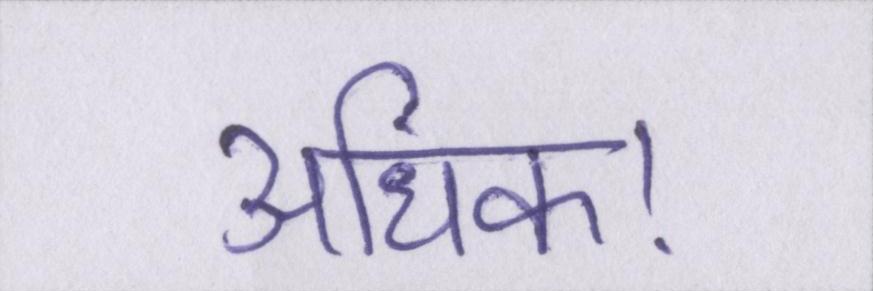 अधिक!